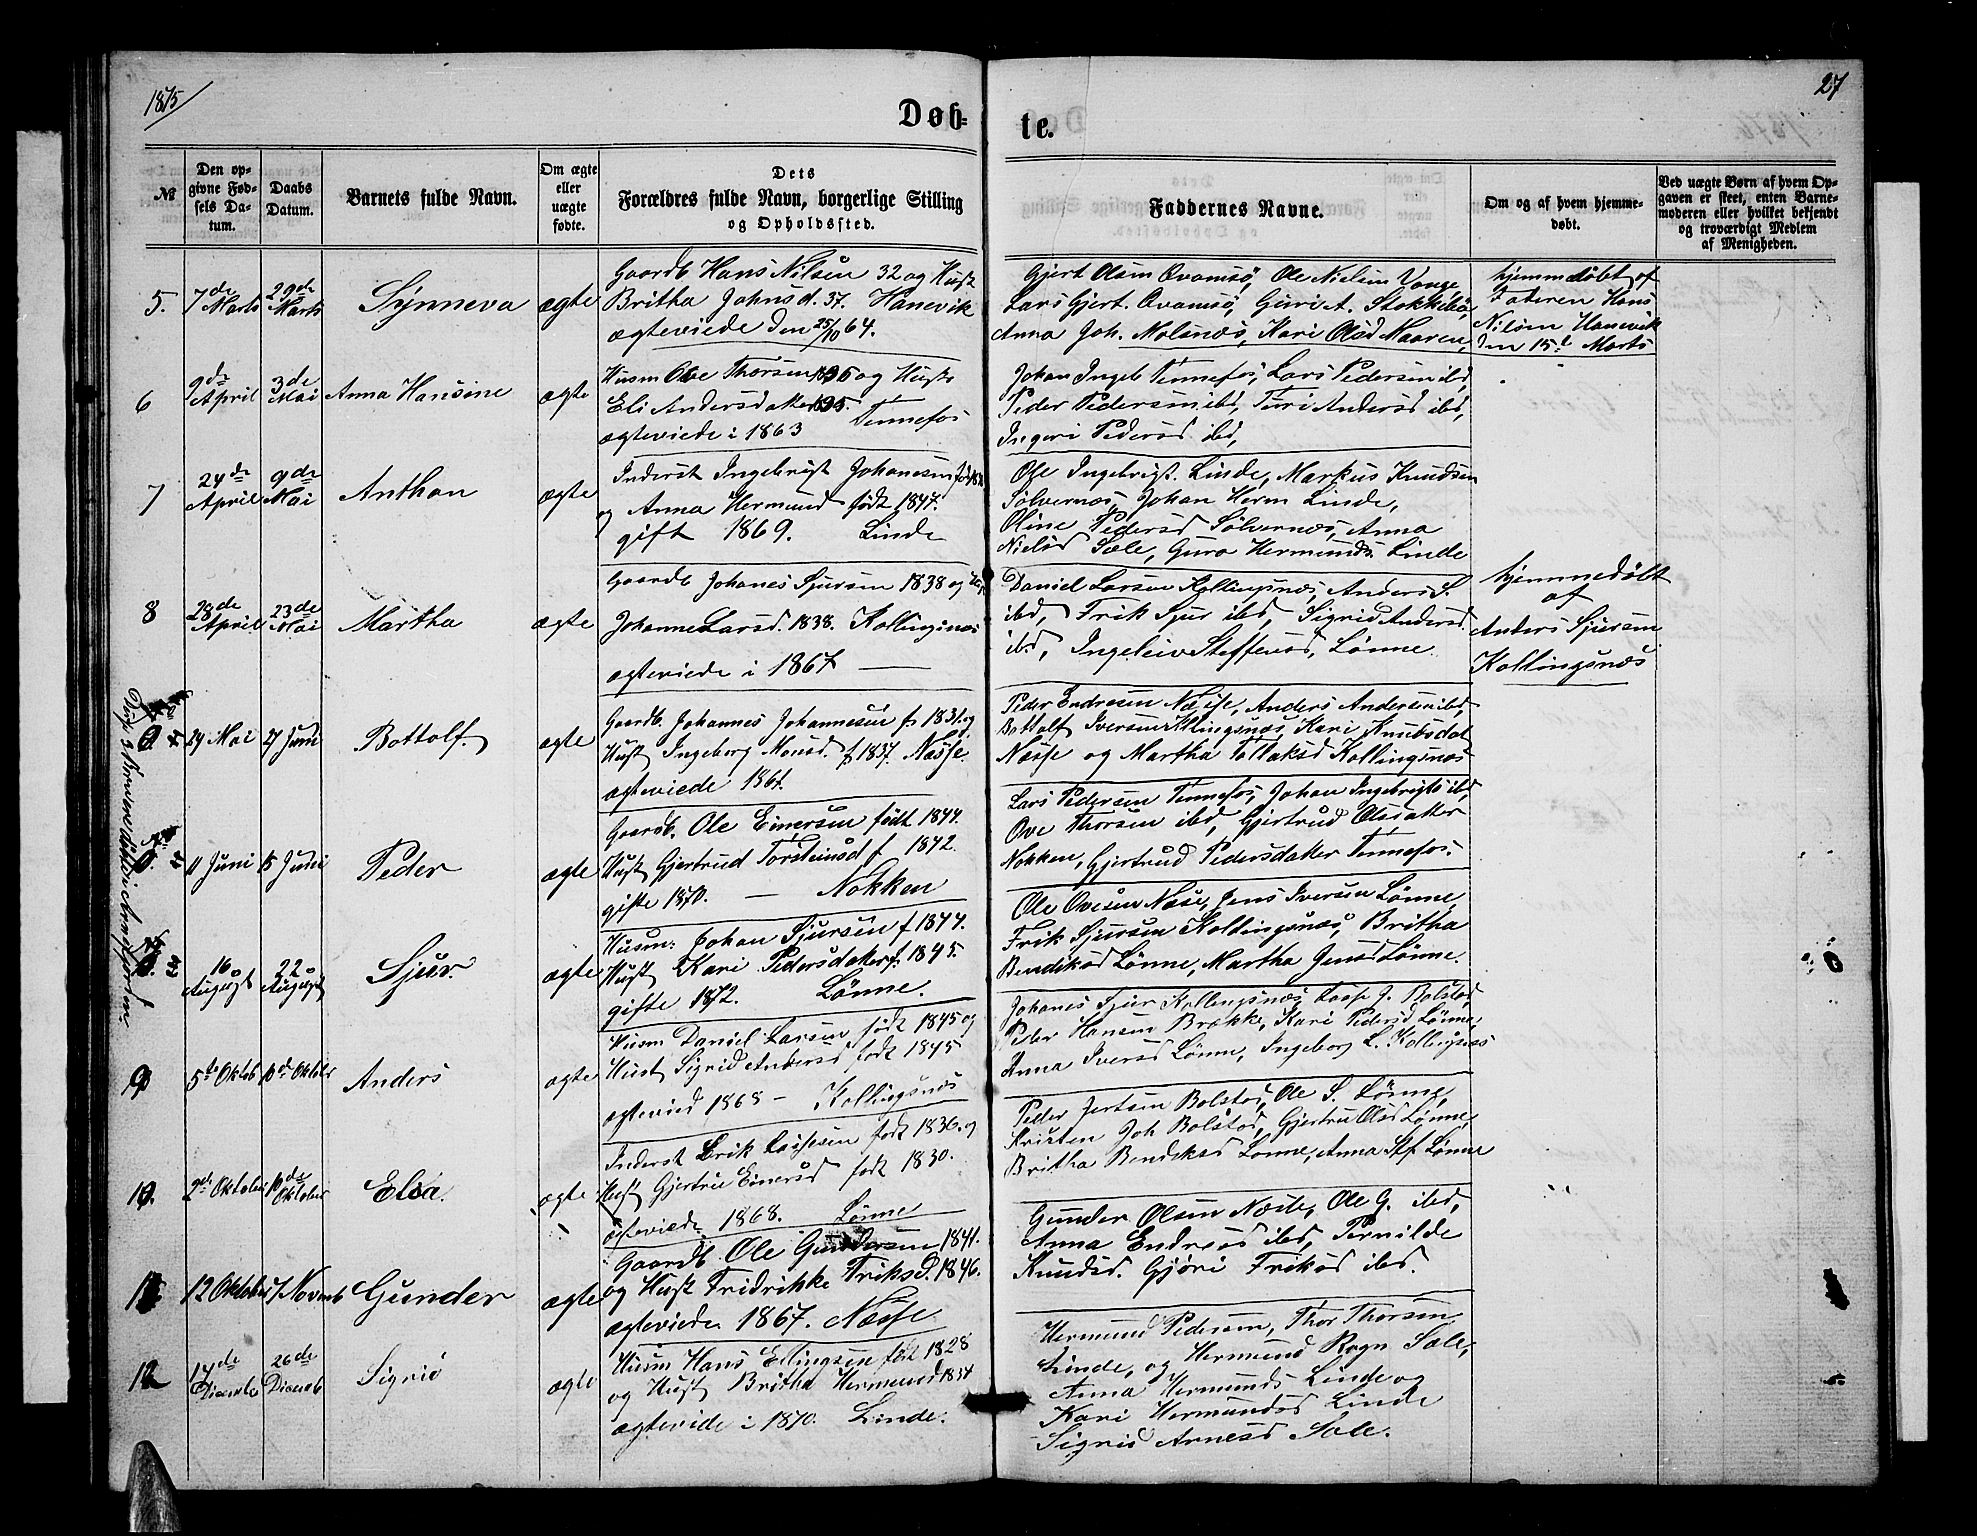 1875
27
Døb-
te.
№
Den op-
givne Fød-
sels Da-
tum.
Daabs
Datum.
Barnets fulde Navn.
Om ægte
eller
uægte
fødte.
Dets
Forældres fulde Navn, borgerlige Stilling
og Opholdssted.
Faddernes Navne.
Om og af hvem hjemme-
døbt.
Ved uægte Børn af hvem Op-
gaven er skeet, enten Barne-
moderen eller hvilket bekjendt
og troværdigt Medlem
af Menigheden.
5. 7de Marts 29de Marts Synneva ægte
Gaardb Hans Nilsen 32 og Hust
Britha Johnsd. 37. Hanevik
ægteviede den 25/10 64.
Gjert Olsen Qvamsø, Ole Nielsen Vange
Lars Gjert. Qvamsø, Guri A. Stokkebø,
Anna Joh. Molsnæs, Kari Olsd Maaren,
hjemmedøbt af
Faderen Hans
Nilsen Hanevik
den 15d Marts
6 9de April 3de Mai Anna Hansine ægte
Husm Ove Thorsen 1835 og Hust
Eli Andersdatter 1835. Tennefos
ægteviede i 1863
Johan Ingeb Tennefos, Lars Pedersen ibd,
Peder Pedersen ibd, Turi Andersd ibd,
Ingeri Pedersd ibd,
7 24de April 9de Mai Anthon ægte
Inderst Ingebrigt Johanesen
og Anna Hermund født 1847.
gift 1869. Linde
Ole Ingebrigt. Linde, Markus Knudsen
Sølvernæs, Johan Herm Linde,
Oline Pedersd Sølvernæs, Anna
Nielsd Sæle, Guro Hermunds. Linde
8 28de April 23de Mai Martha ægte
Gaardb Johanes Sjursen 1838 og
Johanne Larsd. 1838. Kollingsnæs
ægteviede i 1867
Daniel Larsen Kollingsnæs, Anders S.
ibd, Frik Sjur ibd, Sigrid Andersd.
ibd, Ingeleiv Steffensd, Lønne
hjemmedøbt
af
Anders Sjursen
Kollingsnæs
29 Mai 27 Juni Bottolf. ægte
Gaardb. Johannes Johannesen f 1831 og
Hust Ingeborg Monsd. f 1837. Næsje
ægteviede 1861.
Peder Endresen Næsje, Anders Andersen ibd,
Bottolf Iversen Kollingsnæs, Kari Knudsdat
Næsje og Martha Tollaksd Kollingsnæs
11 Juni 15 Juni Peder ægte
Gaardb. Ole Einersen født 1844.
Hust Gjertrud Torsteinsd f 1842.
gifte 1870. Nokken
Lars Pedersen Tennefos, Johan Ingebrigts ibd,
Ove Thorsen ibd, Gjertrud Olsdatter
Nokken, Gjertrud Pedersdatter Tennefos.
16 August 22 August Sjur. ægte
Husm: Johan Sjursen f 1844.
Hust Kari Pedersdatter f. 1845.
gifte 1872. Lønne.
Ole Ovesen Næse, Jens Iversen Lønne,
Frik Sjursen Kollingsnæs, Britha
Bendiksd Lønne, Martha Jensd Lønne.
9 5te Oktob 10de Oktober Anders ægte
Husm Daniel Larsen født 1845 og
Hust Sigrid Andersd født 1845
ægtevied 1868 - Kollingsnæs
Johanes Sjur Kollingsnæs, Lasse J. Bolstad,
Peder Hansen Brække, Kari Pedersd Lønne,
Anna Iversd Lønne, Ingeborg L. Kollingsnæs
10. 2de Oktober 10de Oktober Elsa. ægte
Inderst Erik Lassesen født 1836. og
Hust Gjertrud Einersd født 1830.
ægteviede 1868. Lønne
Peder Jertsen Bolstad, Ole S. Lønne,
Kristen Joh Bolstad, Gjertru Olsd Lønne,
Britha Bendiksd Lønne, Anna Stf Lønne
11 12 Oktober 7 Novemb Gunder ægte
Gaardb. Ole Gundersen 1841.
og Hust Fridrikke Friksd. 1846.
ægteviede 1867. Næsje
Gunder Olsen Næse, Ole G. ibd,
Anna Endresd ibd, Pernilde
Knudsd. Gjøri Friksd ibd.
12 14de Decemb 26de Decemb Sigrid ægte
Husm Hans Ellingsen født 1828
og Hust Britha Hermundsd 1834
ægtevide i 1870. Linde.
Hermund Pedersen, Thor Thorsen
Linde, og Hermund Rogn Sæle,
Anna Hermunds Linde og
Kari Hermundsd Linde
Sigrid Arnesd Sæle.